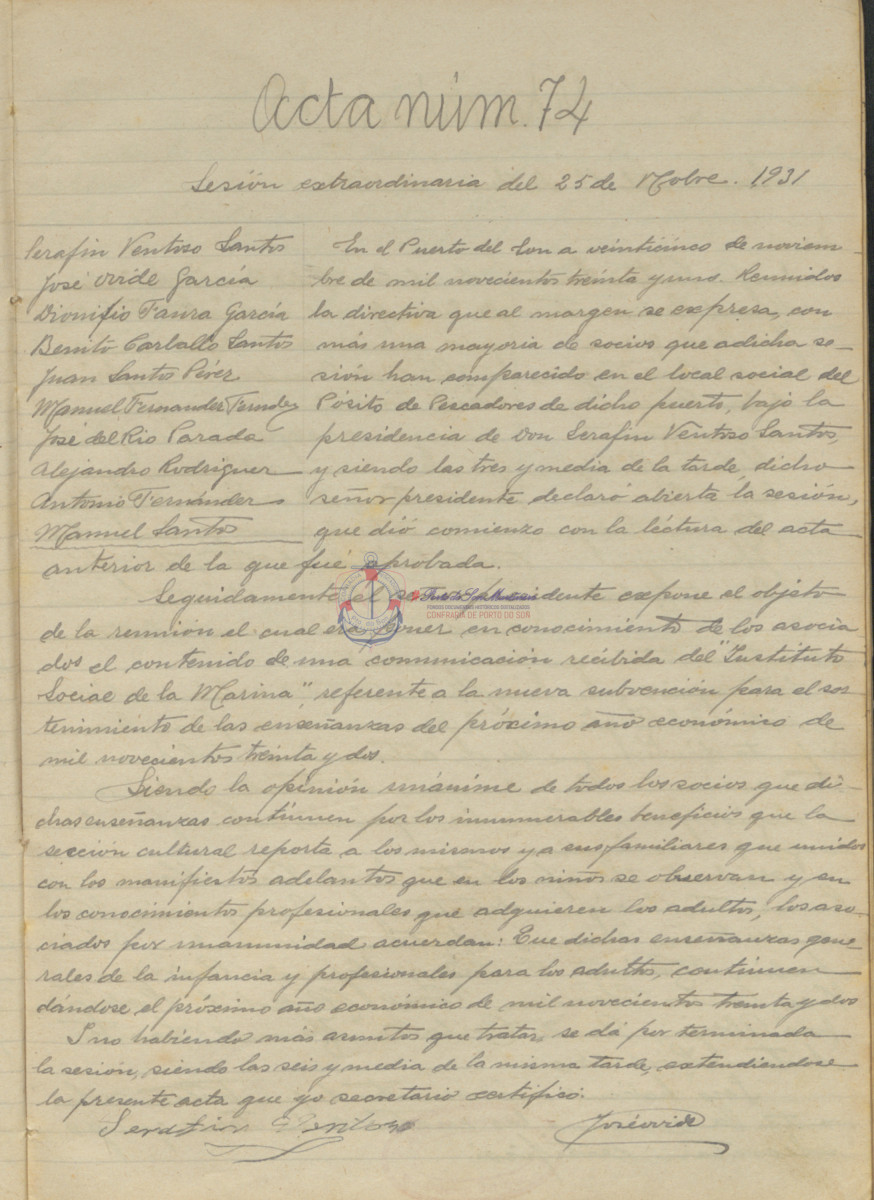 Acta núm. 74
Sesión extraordinaria del 25 de Nobre. 1931
Serafin Ventoso Santos
José Ovide García
Dionisio Faura García
Benito Carballo Santos
Juan Santos Pérez
Manuel Fernandez Fernandez
José del Rio Parada
Alejandro Rodriguez
Antonio Fernández
Manuel Santos
En el Puerto del Son a veinticinco de noviem-
bre de mil novecientos treinta y uno. Reunidos
la directiva que al margen se expresa, con
más una mayoria de socios que adicha se-
sión han comparecido en el local social del
Pósito de Pescadores de dicho puerto, bajo la
presidencia de Don Serafin Ventoso Santos,
y siendo las tres y media de la tarde, dicho
señor presidente declaró abierta la sesión,
que dió comienzo con la léctura del acta
anterior de la que fué aprobada.
Seguidamente el señor presidente expone el objeto
de la reunión el cual era poner en conocimiento de los asocia
dos el contenido de una comunicación recibida del "Instituto
Social de la Marina", referente a la nueva subvención para el sos
tenimiento de las enseñanzas del próximo año económico de
mil novecientos treinta y dos.
Siendo la opinión unánime de todos los socios que di-
chas enseñanzas continuen por los innumerables beneficios que la
sección cultural reporta a los mismos y a sus familiares que unidos
con los manifiestos adelantos que en los niños se observan y en
los conocimientos profesionales que adquieren los adultos, los aso-
ciados por unanimidad acuerdan: Que dichas enseñanzas gene-
rales de la infancia y profesionales para los adultos, continuen
dándose el próximo año económico de mil novecientos treinta y dos
I no habiendo más asuntos que tratar, se dá por terminada
la sesión, siendo las seis y media de la misma tarde, extendiendose
la presente acta que yo secretario certifico.
Serafin Ventoso
José Ovide
FONDOS DOCUMENTAIS HISTÓRICOS DIXITALIZADOS
CONFRARÍA DE PORTO DO SON